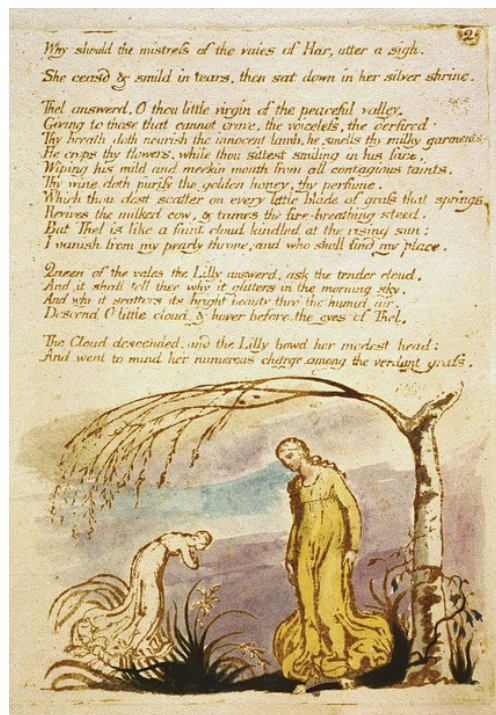 2
Why should the mistreſs of the vales of Har, utter a sigh.
She ceasd & smild in tears, then sat down in her silver shrine.
Thel answerd, O thou little virgin of the peaceful valley.
Giving to those that cannot crave, the voiceleſs, the o'ertired.
Thy breath doth nourish the innocent lamb, he smells thy milky garments,
He crops thy flowers, while thou sittest smiling in his face,
Wiping his mild and meekin mouth from all contagious taints.
Thy wine doth purify the golden honey, thy perfume,
Which thou dost scatter on every little blade of graſs that springs
Revives the milked cow, & tames the fire-breathing steed.
But Thel is like a faint cloud kindled at the rising sun:
I vanish from my pearly throne, and who shall find my place.
Queen of the vales the Lilly answerd, ask the tender cloud,
And it shall tell thee why it glitters in the morning sky,
And why it scatters its bright beauty thro' the humid air.
Descend O little cloud & hover before the eyes of Thel.
The Cloud descended, and the Lilly bowd her modest head:
And went to mind her numerous charge among the verdant graſs.